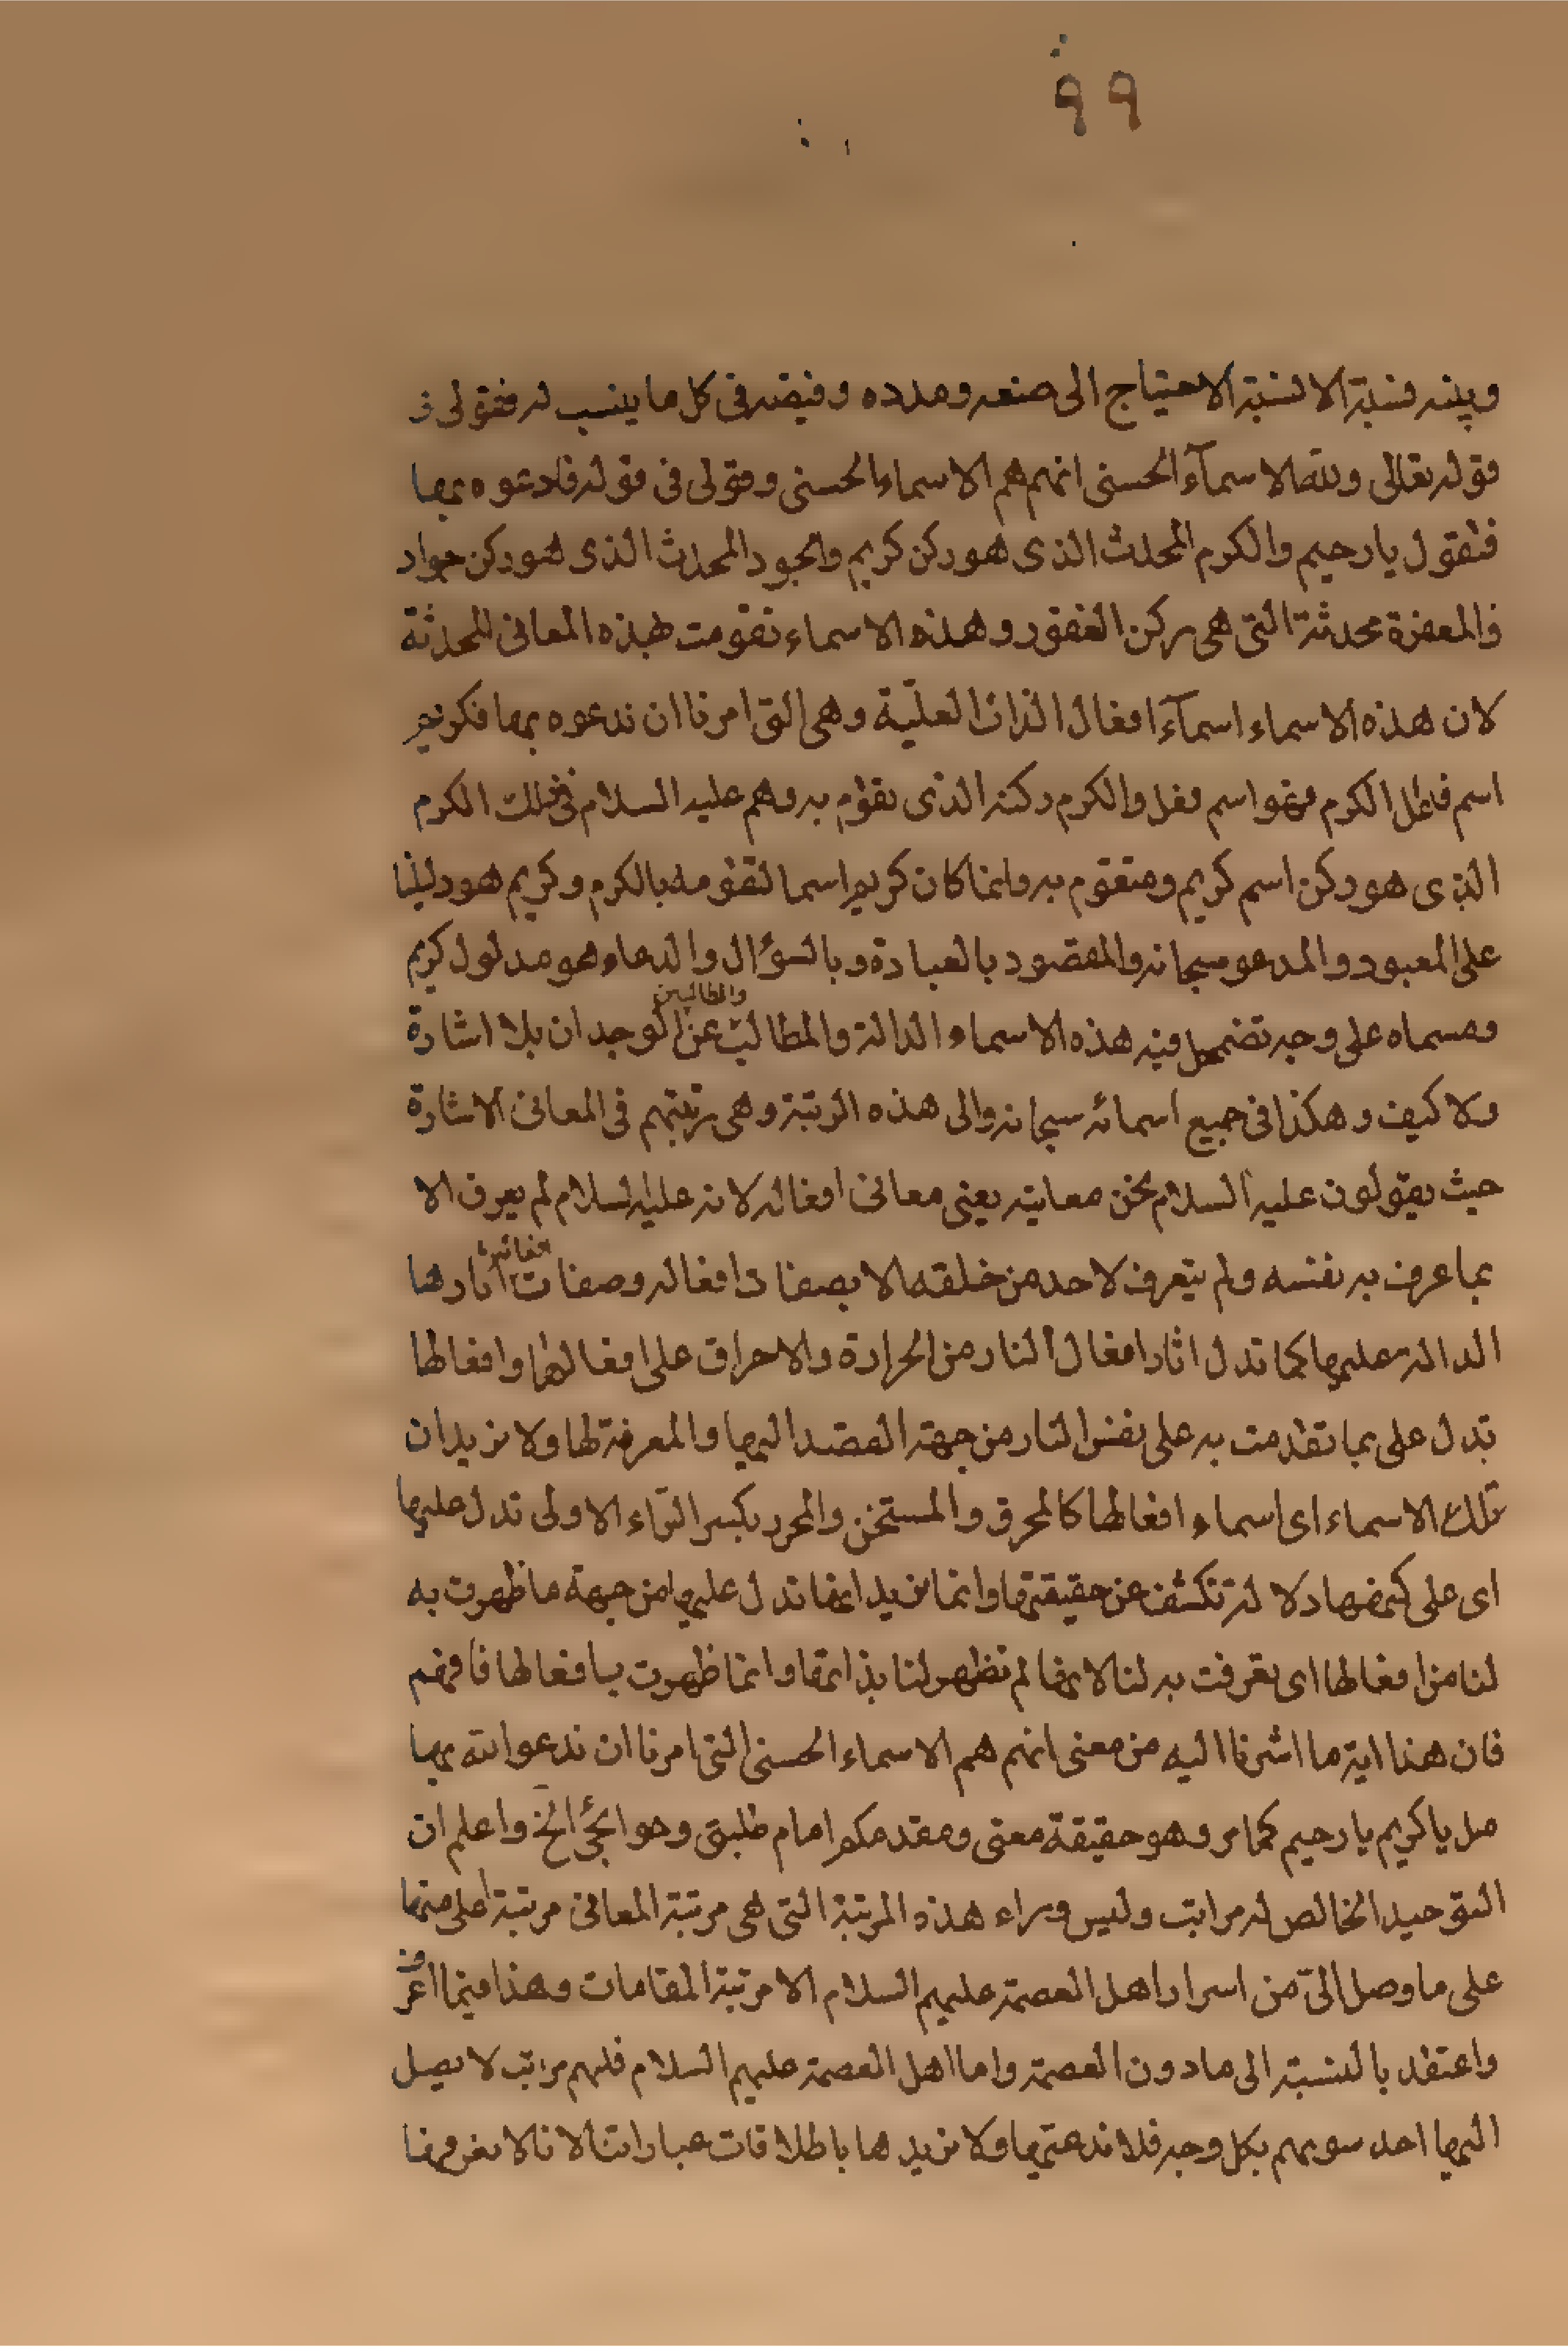 ٩٩
وبينه نسبة الا نسبة الاحتياج الى صنعه ومدده وفيضه فى كل ما ينسب له فقولى فى
قوله تعالى ولله الاسمآء الحسنى انهم هم الاسماء الحسنى وقولى فى قوله فادعوه بها
فنقول يا رحيم والكرم المحدث الذى هو ركن كريم والجود المحدث الذى هو ركن جواد
والمغفرة محدثة التى هى ركن الغفور وهذه الاسماء تقومت بهذه المعانى المحدثة
لان هذه الاسماء اسمآء افعال الذات العليّة وهى التى امرنا ان ندعوه بها فكريم
اسم فاعل الكرم فهو اسم فعل والكرم ركنه الذى تقوم به وهم عليه السلام ذلك الكرم
الذى هو ركن اسم كريم ومتقوم به وانما كان كريم اسما لتقومه بالكرم وكريم هو دليلنا
على المعبود والمدعو سبحانه والمقصود بالعبادة وبالسؤال والدعاء هو مدلول كريم
ومسماه على وجه تضمحل فيه هذه الاسماء الدالة والمطالب والطالبين عن الوجدان بلا اشارة
ولا كيف وهكذا فى جميع اسمائه سبحانه والى هذه الرتبة وهى رتبتهم فى المعانى الاشارة
حيث يقولون عليه السلام نحن معانيه يعنى معانى افعاله لانه عليه السلام لم يعرف الا
بما عرف به نفسه ولم يتعرف لاحد من خلقه الا بصفات افعاله وصفات آثارها
الدالة عليها كما تدل اثار افعال النار من الحرارة والاحراق على افعالها وافعالها
تدل على بما تقدمت به على نفس النار من جهة القصد اليها والمعرفة لها ولا نريد ان
تلك الاسماء اى اسماء افعالها كالمحرق والمستخن والمحرر بكسر الرّاء الاولى تدل عليها
اى على كنهها دلالة تكشف عن حقيقتها وانما نريد انها تدل عليها من جهة ما ظهرت به
لنا من افعالها اى تعرفت به لنا لانها لم تظهر لنا بذاتها وانما ظهرت بافعالها فافهم
فان هذا اية ما اشرنا اليه من معنى انهم هم الاسماء الحسنى التى امرنا ان ندعو الله بها
مل يا كريم يا رحيم كما مر وهو حقيقة معنى ومقدمكم امام طلبتى وحوائجى الخ واعلم ان
التوحيد الخالص له مراتب وليس وراء هذه المرتبة التى هى مرتبة المعانى مرتبة اعلى منها
على ما وصل الىّ من اسرار اهل العصمة عليهم السلام الا مرتبة المقامات وهذا فيما اعرف
واعتقد بالنسبة الى ما دون العصمة واما اهل العصمة عليهم السلام فلهم مراتب لا يصل
اليها احد سويهم بكل وجه فلا ندعيها ولا نريدها باطلاقات عباراتنا لانا لا نعرفها